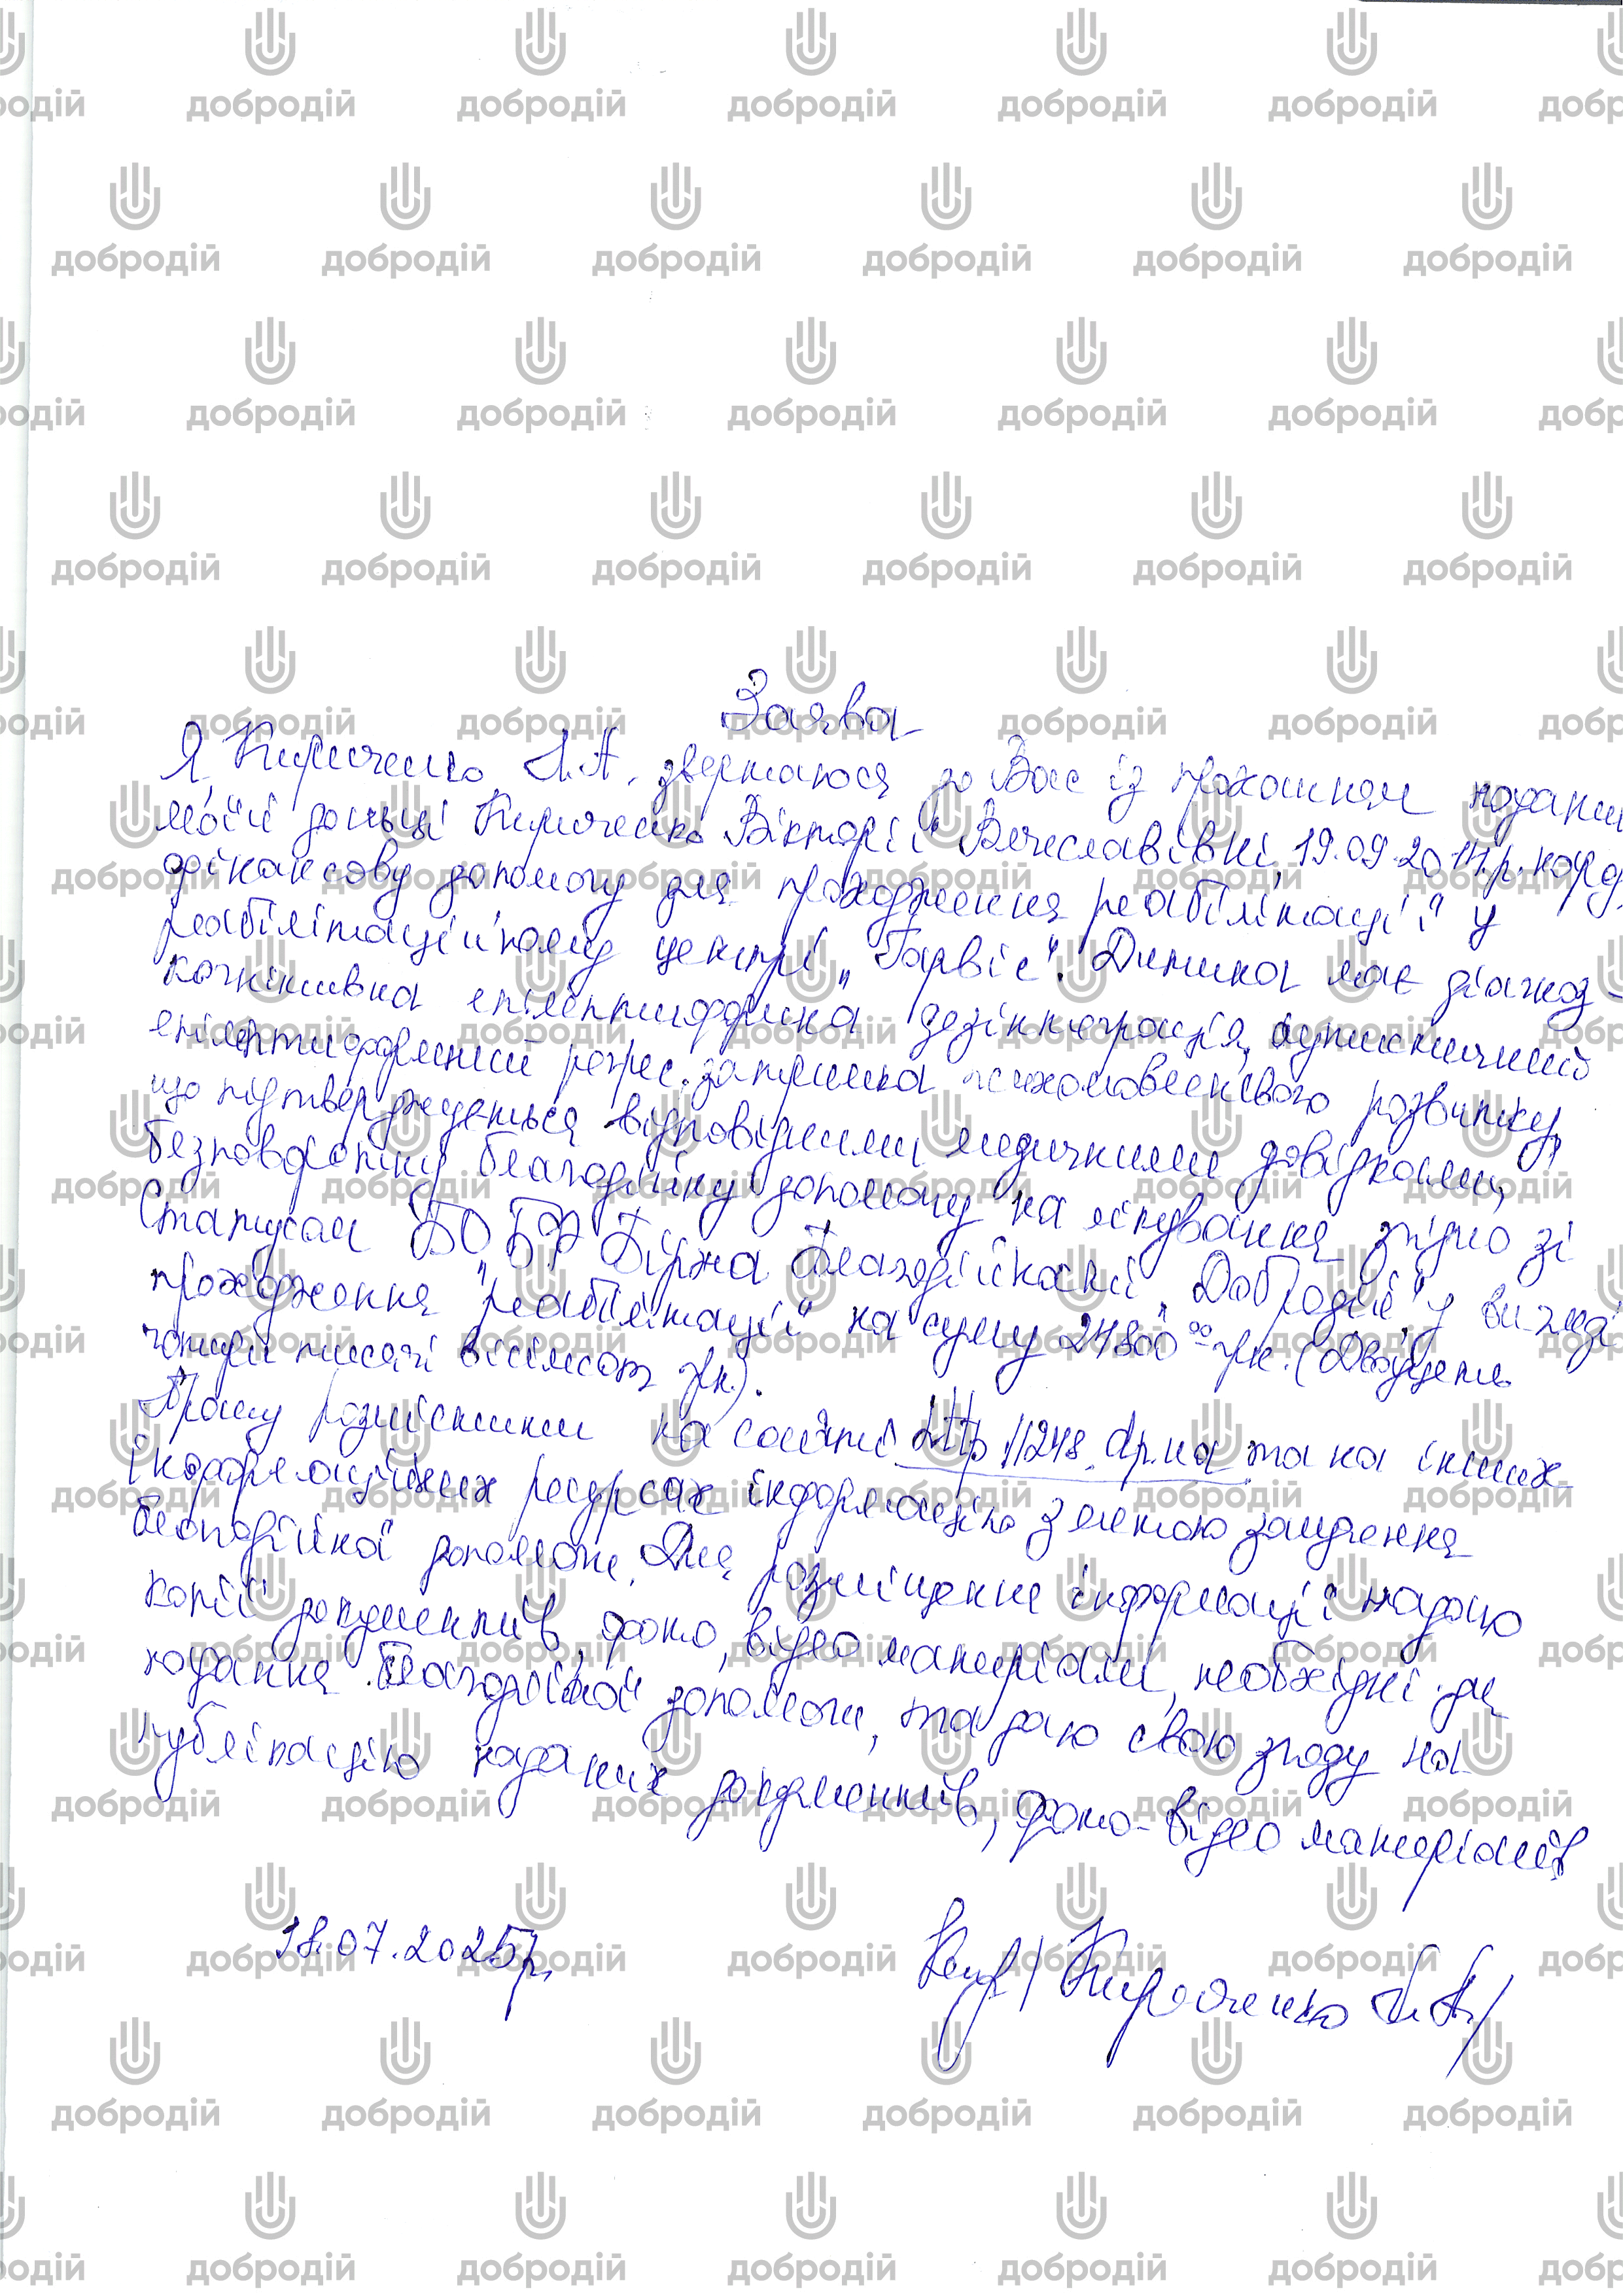 Заява
Я, Кириченко Л.А. звертаюся до Вас із проханням надати
моїй доньці Кириченко Вікторії Вячеславівні, 19.09.2014.р.нард.
фінансову допомогу для проходження реабілітації у
реабілітаційному центрі „Гарвіс". Дитина має діагноз -
когнітивна епілептиформна дезінтеграція, аутистичний
епілептиформний регрес. затримка психомовленєвого розвитку,
що підтверджується відповідними медичними довідками,
безповоротну благодійну допомогу на лікування згідно зі
Статусом БО „БФ Біржа благодійності „Добродій", у вигляді
проходження реабілітації на суму 24800 00 грн. (Двадцять
чотири тисячі вісімсот грн.).
Прошу розмістити на сайті http://1248.dp.ua та на інших
інформаційних ресурсах інформацію з метою залучення
благодійної допомоги. Для розміщення інформації надаю
копії документів, фото, відео матеріали, необхідні для
надання благодійної допомоги, та даю свою згоду на
публікацію наданих документів, фото-відео матеріалів
18.07.2025р. / Кириченко Л.А./
добродій